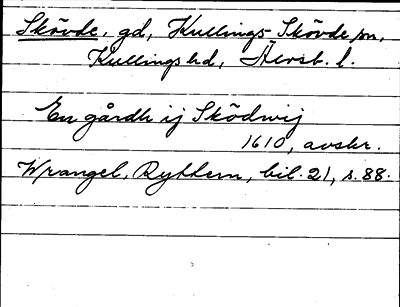 Skövde, gd, Kullings-Skövde sn,
Kullings hd, Älvsb. l.
En gårdh ij Sködwij
1610, avskr.
Wrangel, Ryttern, bil. 21, s. 88.